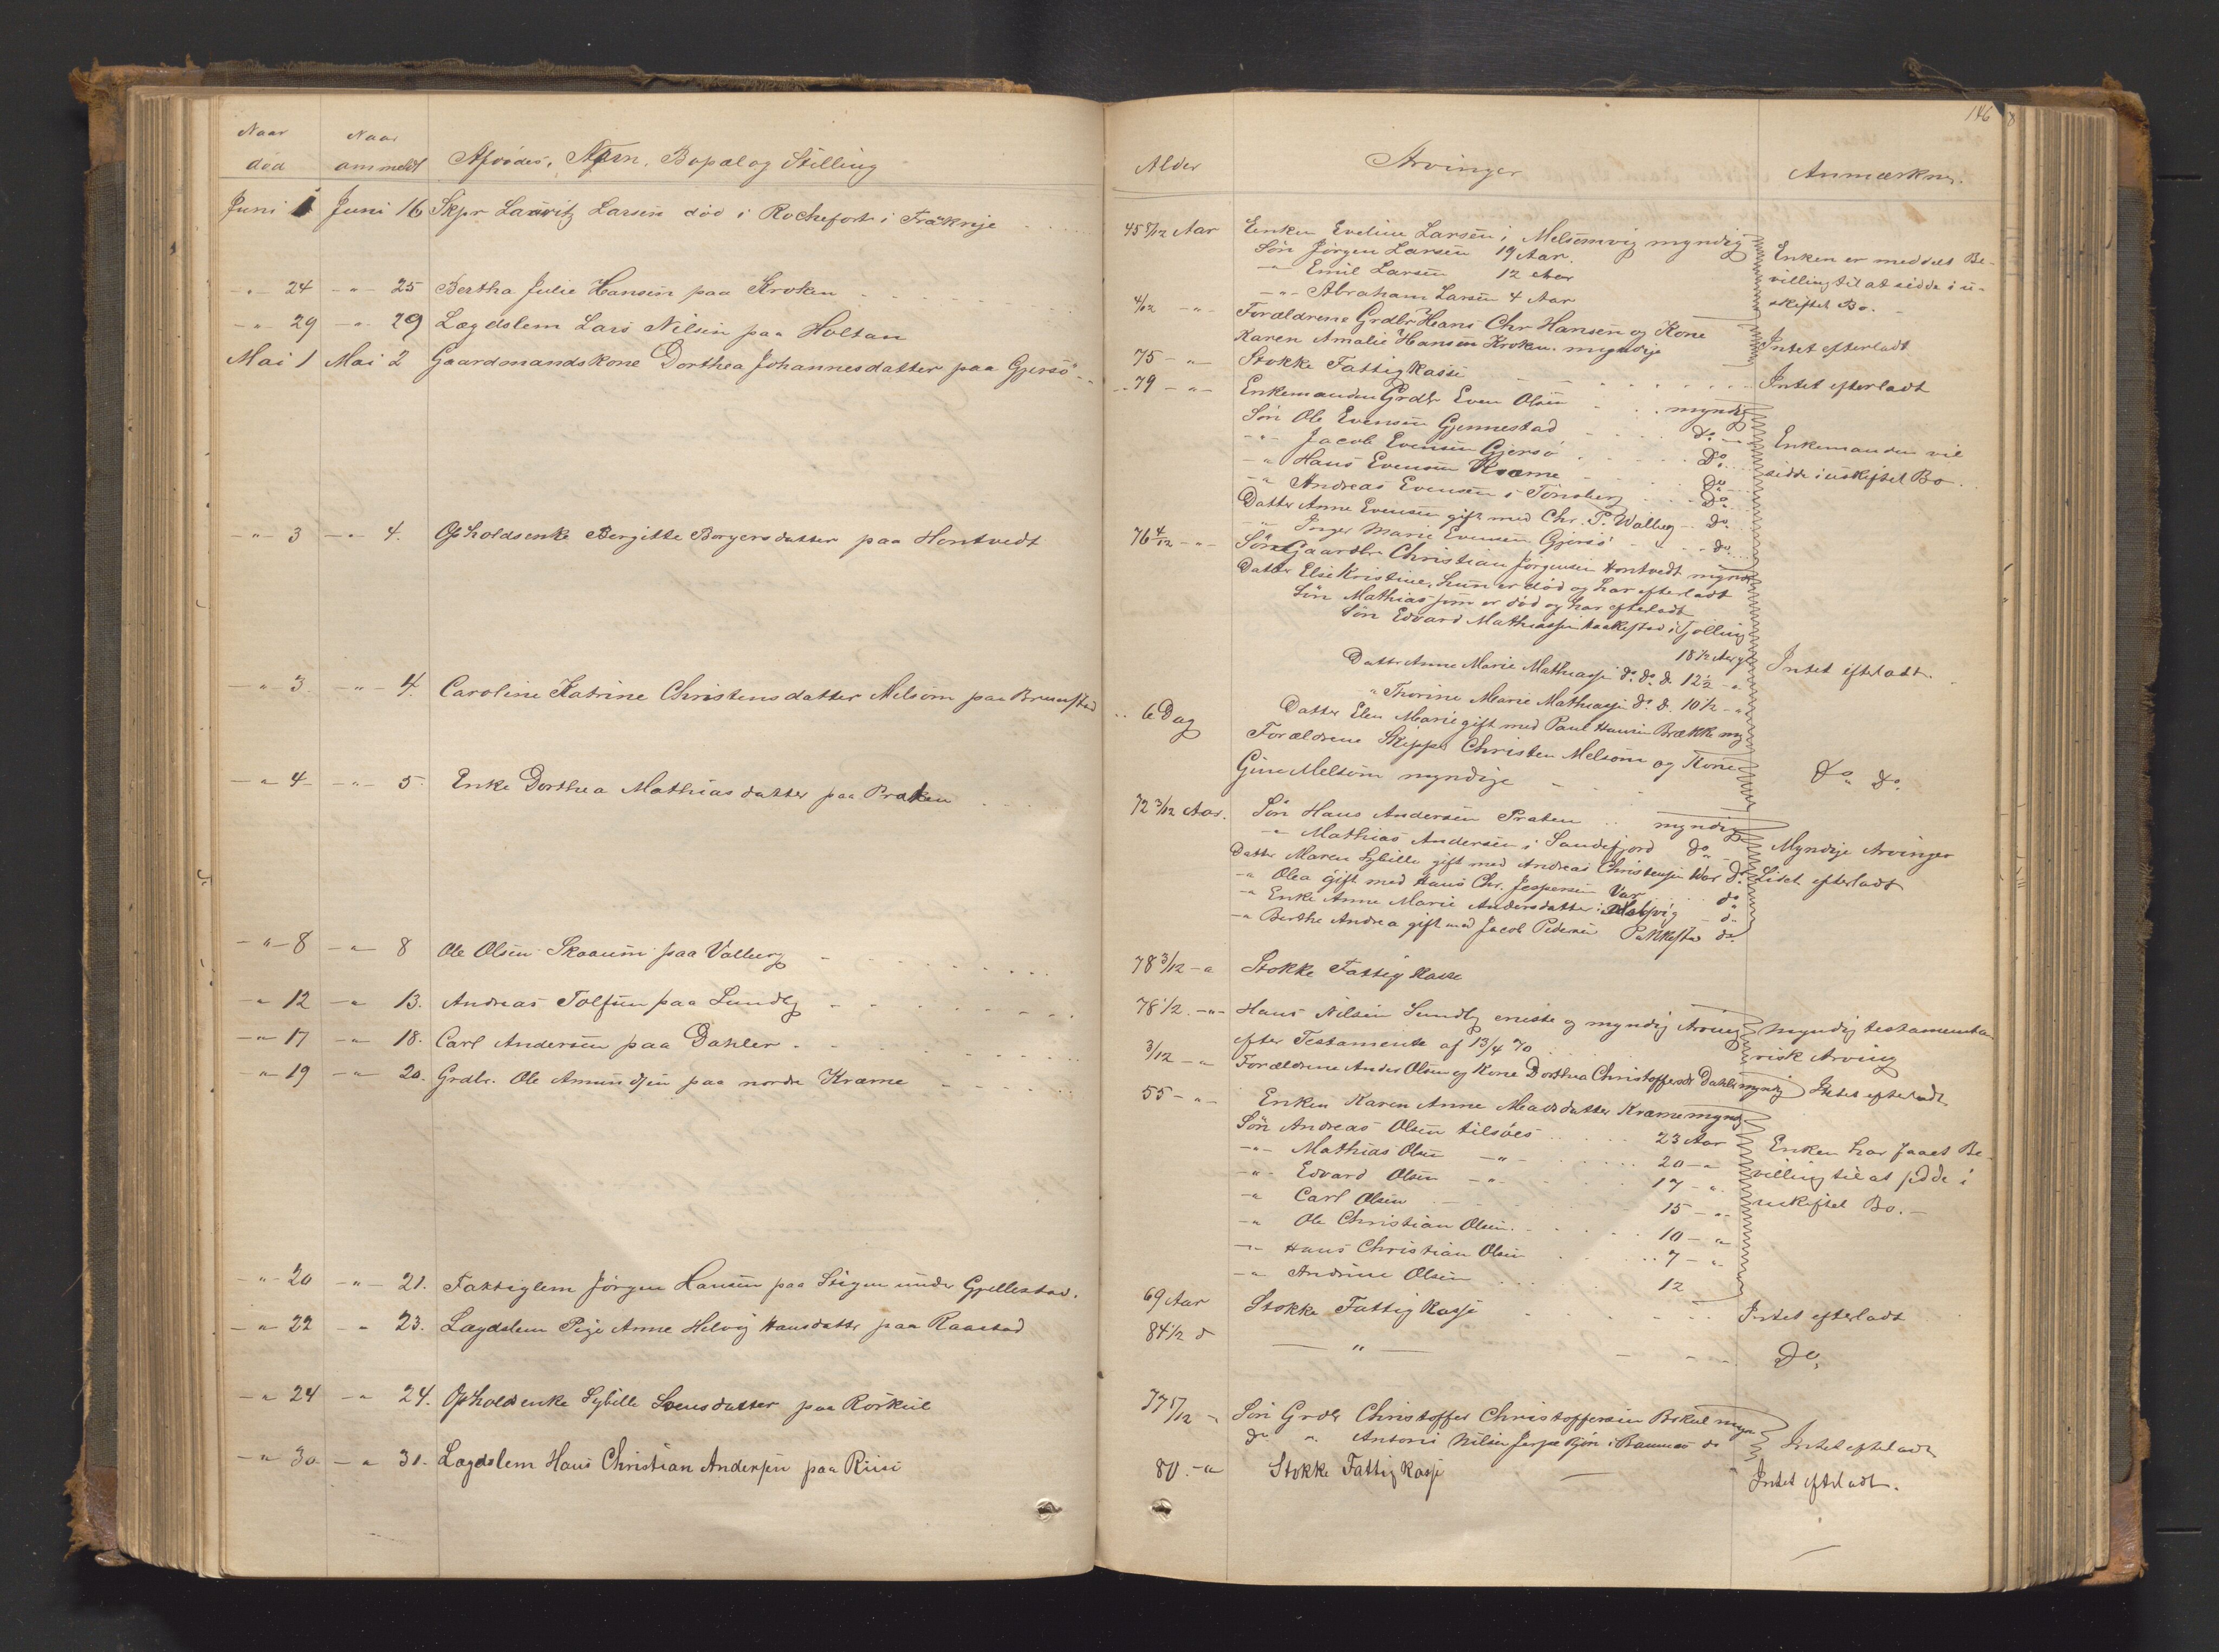 Naar død
Naar anmeldt
Afdødes, Navn, Bopæl og Stilling
Juni 1 Juni 16 Skpr Lauritz Larsen død i Rochefort i Frankrije
-"- 24 -"- 25 Bertha Julie Hansen paa Kroken
-"- 29 -"- 29 Lægdslem Lars Nilsen paa Holtan
Mai 1 Mai 2 Gaardmandskone Dorthea Johannesdatter paa Gjersö
-"- 3 -"- 4. Opholdsenke Bergitte Borgersdatter paa Hontvedt
-"- 3. -"- 4. Caroline Katrine Christensdatter Melsom paa Brunstad
-"- 4 -"- 5. Enke Dorthea Mathiasdatter paa Praten
-"- 8 -"- 8 Ole Olsen Skaaum paa Valberg
-"- 12 -"- 13. Andreas Tolfsen paa Sundby
-"- 17 -"- 18. Carl Andersen paa Dahler
-"- 19 -"- 20. Grdbr. Ole Amundsen paa nordre Kræme
-"- 20 -"- 21. Fattiglem Jørgen Hansen paa under Gjellestad.
-"- 22 -"- 23. Lægdslem Pige Anne Helvig Hansdatter paa Raastad
-"- 24 -"- 24. Opholdsenke Sybille Svensdatter paa Rörkul
-"- 30 -"- 31. Lægdslem Hans Christian Andersen paa Riisi
146
Alder
Arvinger
Anmærkng.
45 5/12 Aar Enken Eveline Larsen i Melsomvig myndig
Søn Jørgen Larsen 19 Aar.
-"- Emil Larsen 12 Aar
-"- Abraham Larsen 4 Aar
Enken er meddelt Be-
villing til at sidde i u-
skiftet Bo.
4/12 -"- Forældrene Grdbr Hans Chr Hansen og Kone
Karen Amalie Hansen Kroken. myndige
Intet efterladt
75 -"- Stokke Fattigkasse
Intet efterladt
79 -"- Enkemanden Grdbr Even Olsen myndig
Søn Ole Evensen Gjennestad do
-"- Jacob Evensen Gjersö do
-"- Hans Evensen Kræme do
-"- Andreas Evensen i Tönsberg do
Datter Anne Evensen gift med Chr. P. Walberg do
-"- Inger Marie Evensen Gjersö do
Enkemanden vil
sidde i uskiftet Bo.
76 4/12 -"- Søn Gaardbr Christian Jörgensen Hontvedt mynd
Datter Else Kristine, hun er død og har efterladt
Søn Mathias som er død og har efterladt
Søn Edvard Mathiassen i Tjölling
18 1/2 Aar gl
Datter Anne Marie Mathiassen do do do 12 1/2 -"-
" Thorine Marie Mathiassen do do 10 1/2 -"-
Datter Elen Marie gift med Paul Hansen Brække my
Intet efterladt.
6 Dag Forældrene Skipper Christen Melsom og Kone
Gine Melsom myndige
Do Do
72 3/12 Aar. Søn Hans Andersen Praten myndig
-"- Mathias Andersen i Sandefjord do
Datter Maren Sybille gift med Andreas Christensen War do
-"- Olea gift med Hans Chr. Jespersen Var do
-"- Enke Anne Marie Andersdatter i do
-"- Berthe Andrea gift med Jacob Pedersen do
Myndige Arvinger
Lidet efterladt
78 3/12 -"- Stokke Fattigkasse
78 1/2 -"- Hans Nilsen Sundby eneste og myndig Arving
efter Testamente af 13/4 70
Myndig testamenta-
risk Arving
3/12 -"- Forældrene Anders Olsen og Kone Dorthea Christoffersdr Dahler myndig
Intet efterladt
55 -"- Enken Karen Anne Madsdatter Kræme mynd
Søn Andreas Olsen tilsöes 23 Aar
-"- Mathias Olsen -"- 20 -"-
-"- Edvard Olsen -"- 17 -"-
-"- Carl Olsen 15 -"-
-"- Ole Christian Olsen. 10 -"-
-"- Hans Christian Olsen 7 -"-
-"- Andrine Olsen 12
Enken har faaet Be-
villing til at sidde i
uskiftet Bo.
69 Aar Stokke Fattigkasse
Intet efterladt
84 1/2 d -"-
Do,
77 5/12 -"- Søn Grdbr Christoffer Christoffersen mynd
do " Antoni Nilsen i Ramnes do
Intet efterladt
80 -"- Stokke Fattigkasse
Intet efterladt.